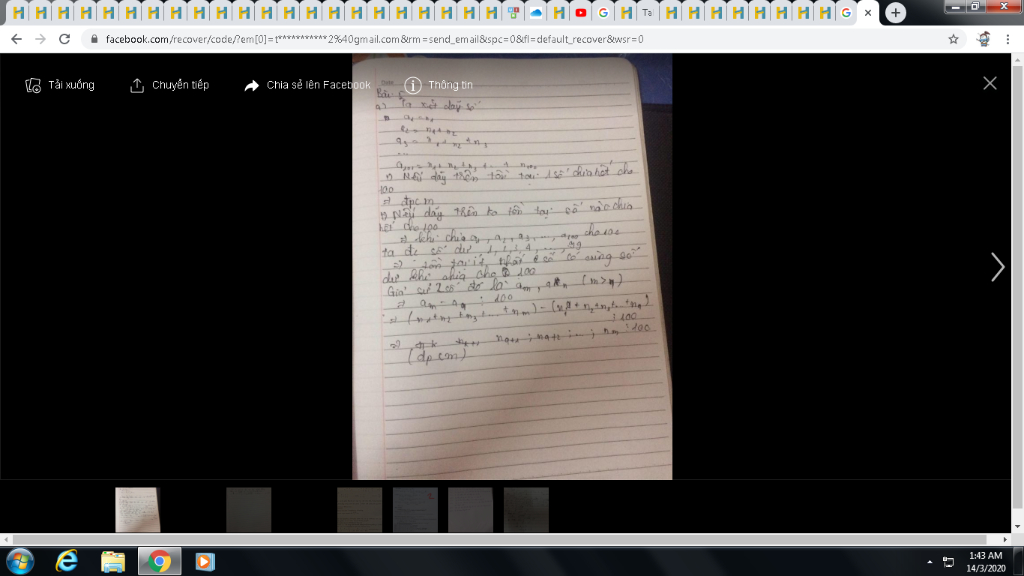 Ta
facebook.com/recover/code/?em[0]=t***********2%40gmail.com&rm=send_email&spc=0&fl=default_recover&wsr=0
Tải xuống Chuyển tiếp Chia sẻ lên Facebook Thông tin
Bài
a) Ta xét dãy số
a₁ = x₁
a₂ = x₁ + x₂
a₃ = x₁ + x₂ + x₃
...
+) Nếu dãy trên tồn tại 1 số chia hết cho
100
=> đpcm
+) Nếu dãy trên ko tồn tại số nào chia
hết cho 100
=> khi chia cho 100
ta đc số dư 1, 2, 3, 4, ... 99
=> tồn tại ít nhất 2 số có cùng số
dư khi chia cho 100
Giả sử 2 số đó là aₘ, aₙ (m>n)
=> aₘ - aₙ ⋮ 100
⋮ 100
(đpcm)
1:43 AM
14/3/2020